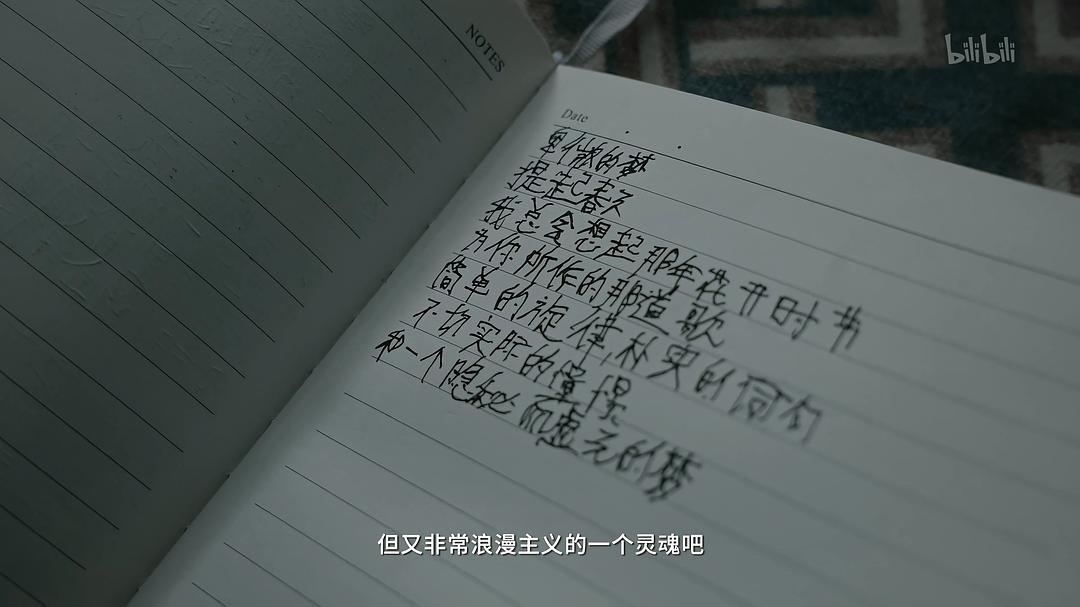 NOTES
bilibili
Date
卑微的梦
提起春天
我总会想起那年花开时节
为你所作的那道歌
简单的旋律,朴实的词句
不切实际的憧憬
和一个隐秘而虚无的梦
但又非常浪漫主义的一个灵魂吧